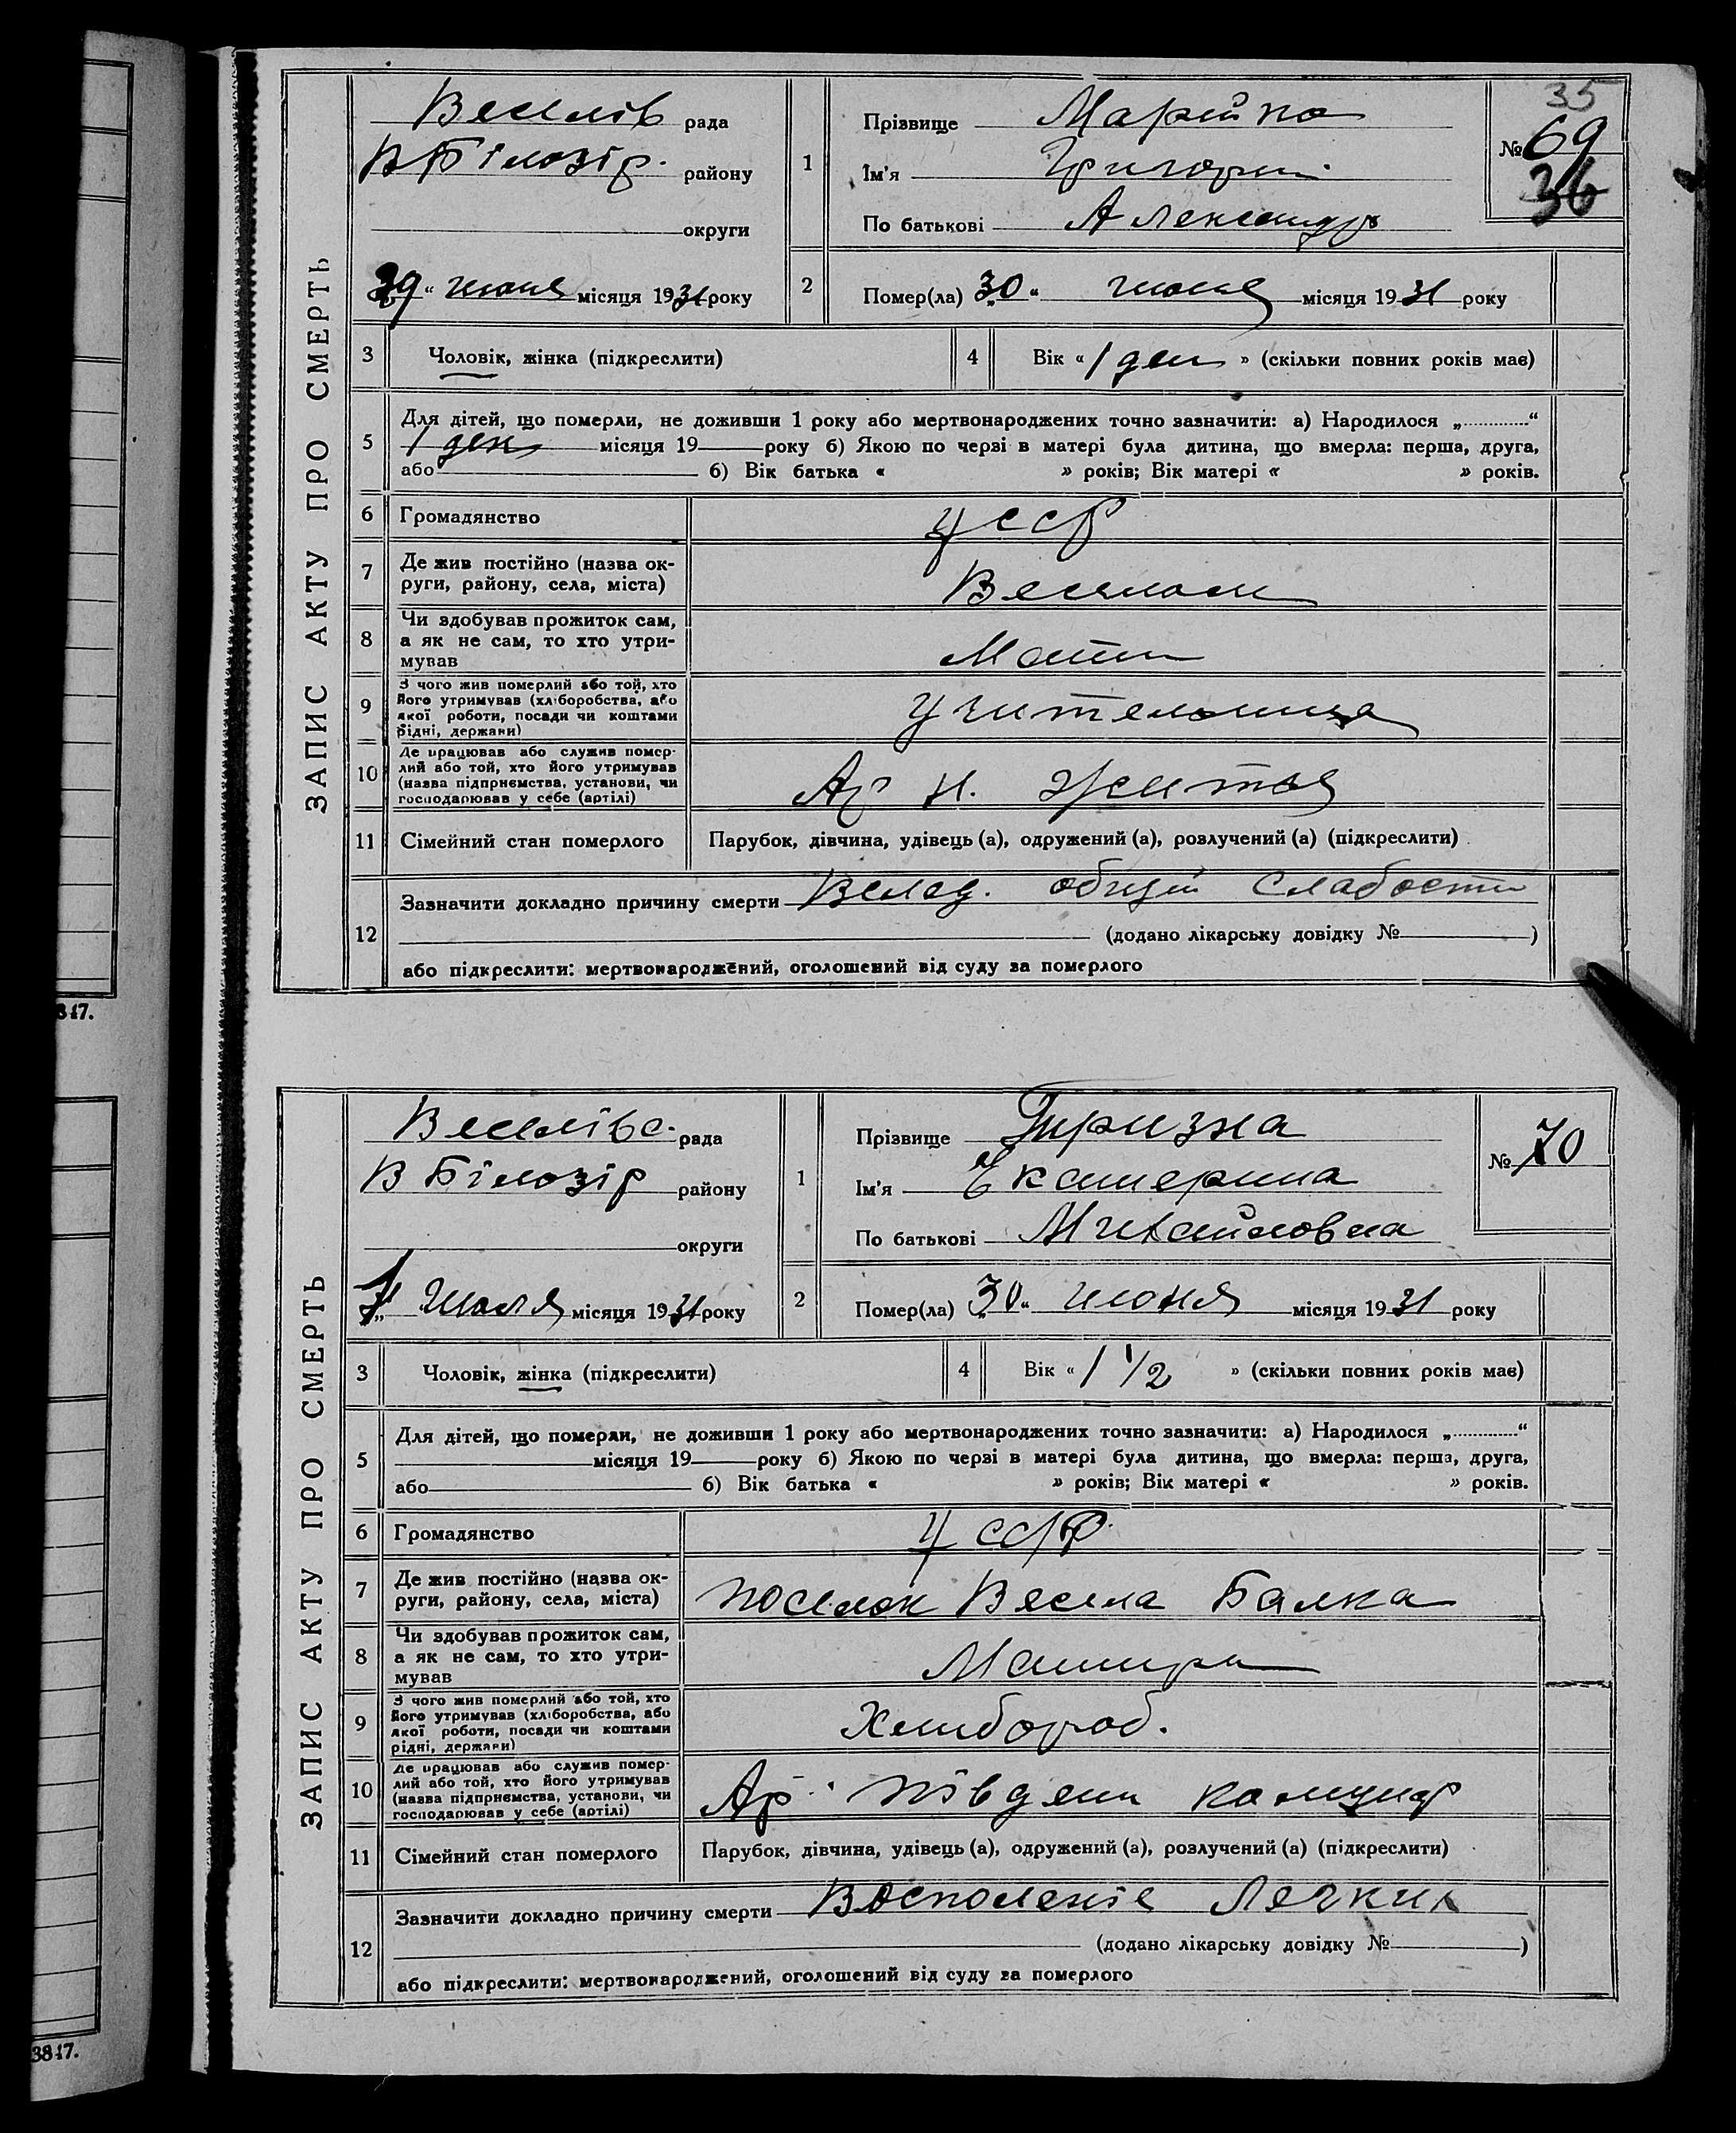 817.
3847.
35
ЗАПИС АКТУ ПРО СМЕРТЬ
Веселів рада
ВБілозір. району
округи
29 “ июня місяця 1931 року
1
Прізвище
Ім'я Григорий
По батькові Александр
№ 69
36
2
Помер(ла) „30“ июня місяця 1931 року
3
Чоловік, жінка (підкреслити)
4
Вік « 1 ден » (скільки повних років має)
5
Для дітей, що померли, не доживши 1 року або мертвонароджених точно зазначити: а) Народилося „............“
1 ден місяця 19 року б) Якою по черзі в матері була дитина, що вмерла: перша, друга,
або б) Вік батька « » років; Вік матері « » років.
6
Громадянство
УССР
7
Де жив постійно (назва ок-
руги, району, села, міста)
8
Чи здобував прожиток сам,
а як не сам, то хто утри-
мував
Мати
9
З чого жив померлий або той, хто
його утримував (хліборобства, або
якої роботи, посади чи коштами
рідні, держави)
Учительница
10
Де працював або служив помер-
лий або той, хто його утримував
(назва підприємства, установи, чи
господарював у себе (артілі)
Ар н. Життя
11
Сімейний стан померлого
Парубок, дівчина, удівець (а), одружений (а), розлучений (а) (підкреслити)
12
Зазначити докладно причину смерти Вслед. общей слабости
(додано лікарську довідку № )
або підкреслити: мертвонароджений, оголошений від суду за померлого
ЗАПИС АКТУ ПРО СМЕРТЬ
Веселівс. рада
В Білозір району
округи
1 „ Июля місяця 1931 року
1
Прізвище
Ім'я Екатерина
По батькові Михайловна
№ 70
2
Помер(ла) „30“ июня місяця 1931 року
3
Чоловік, жінка (підкреслити)
4
Вік « 1 1/2 » (скільки повних років має)
5
Для дітей, що померли, не доживши 1 року або мертвонароджених точно зазначити: а) Народилося „............“
місяця 19 року б) Якою по черзі в матері була дитина, що вмерла: перша, друга,
або б) Вік батька « » років; Вік матері « » років.
6
Громадянство
УССР.
7
Де жив постійно (назва ок-
руги, району, села, міста)
поселок Весела Балка
8
Чи здобував прожиток сам,
а як не сам, то хто утри-
мував
9
З чого жив померлий або той, хто
його утримував (хліборобства, або
якої роботи, посади чи коштами
рідні, держави)
Хлибороб.
10
Де працював або служив помер-
лий або той, хто його утримував
(назва підприємства, установи, чи
господарював у себе (артілі)
Ар. Південн комунар
11
Сімейний стан померлого
Парубок, дівчина, удівець (а), одружений (а), розлучений (а) (підкреслити)
12
Зазначити докладно причину смерти Восполеніе Легких
(додано лікарську довідку № )
або підкреслити: мертвонароджений, оголошений від суду за померлого